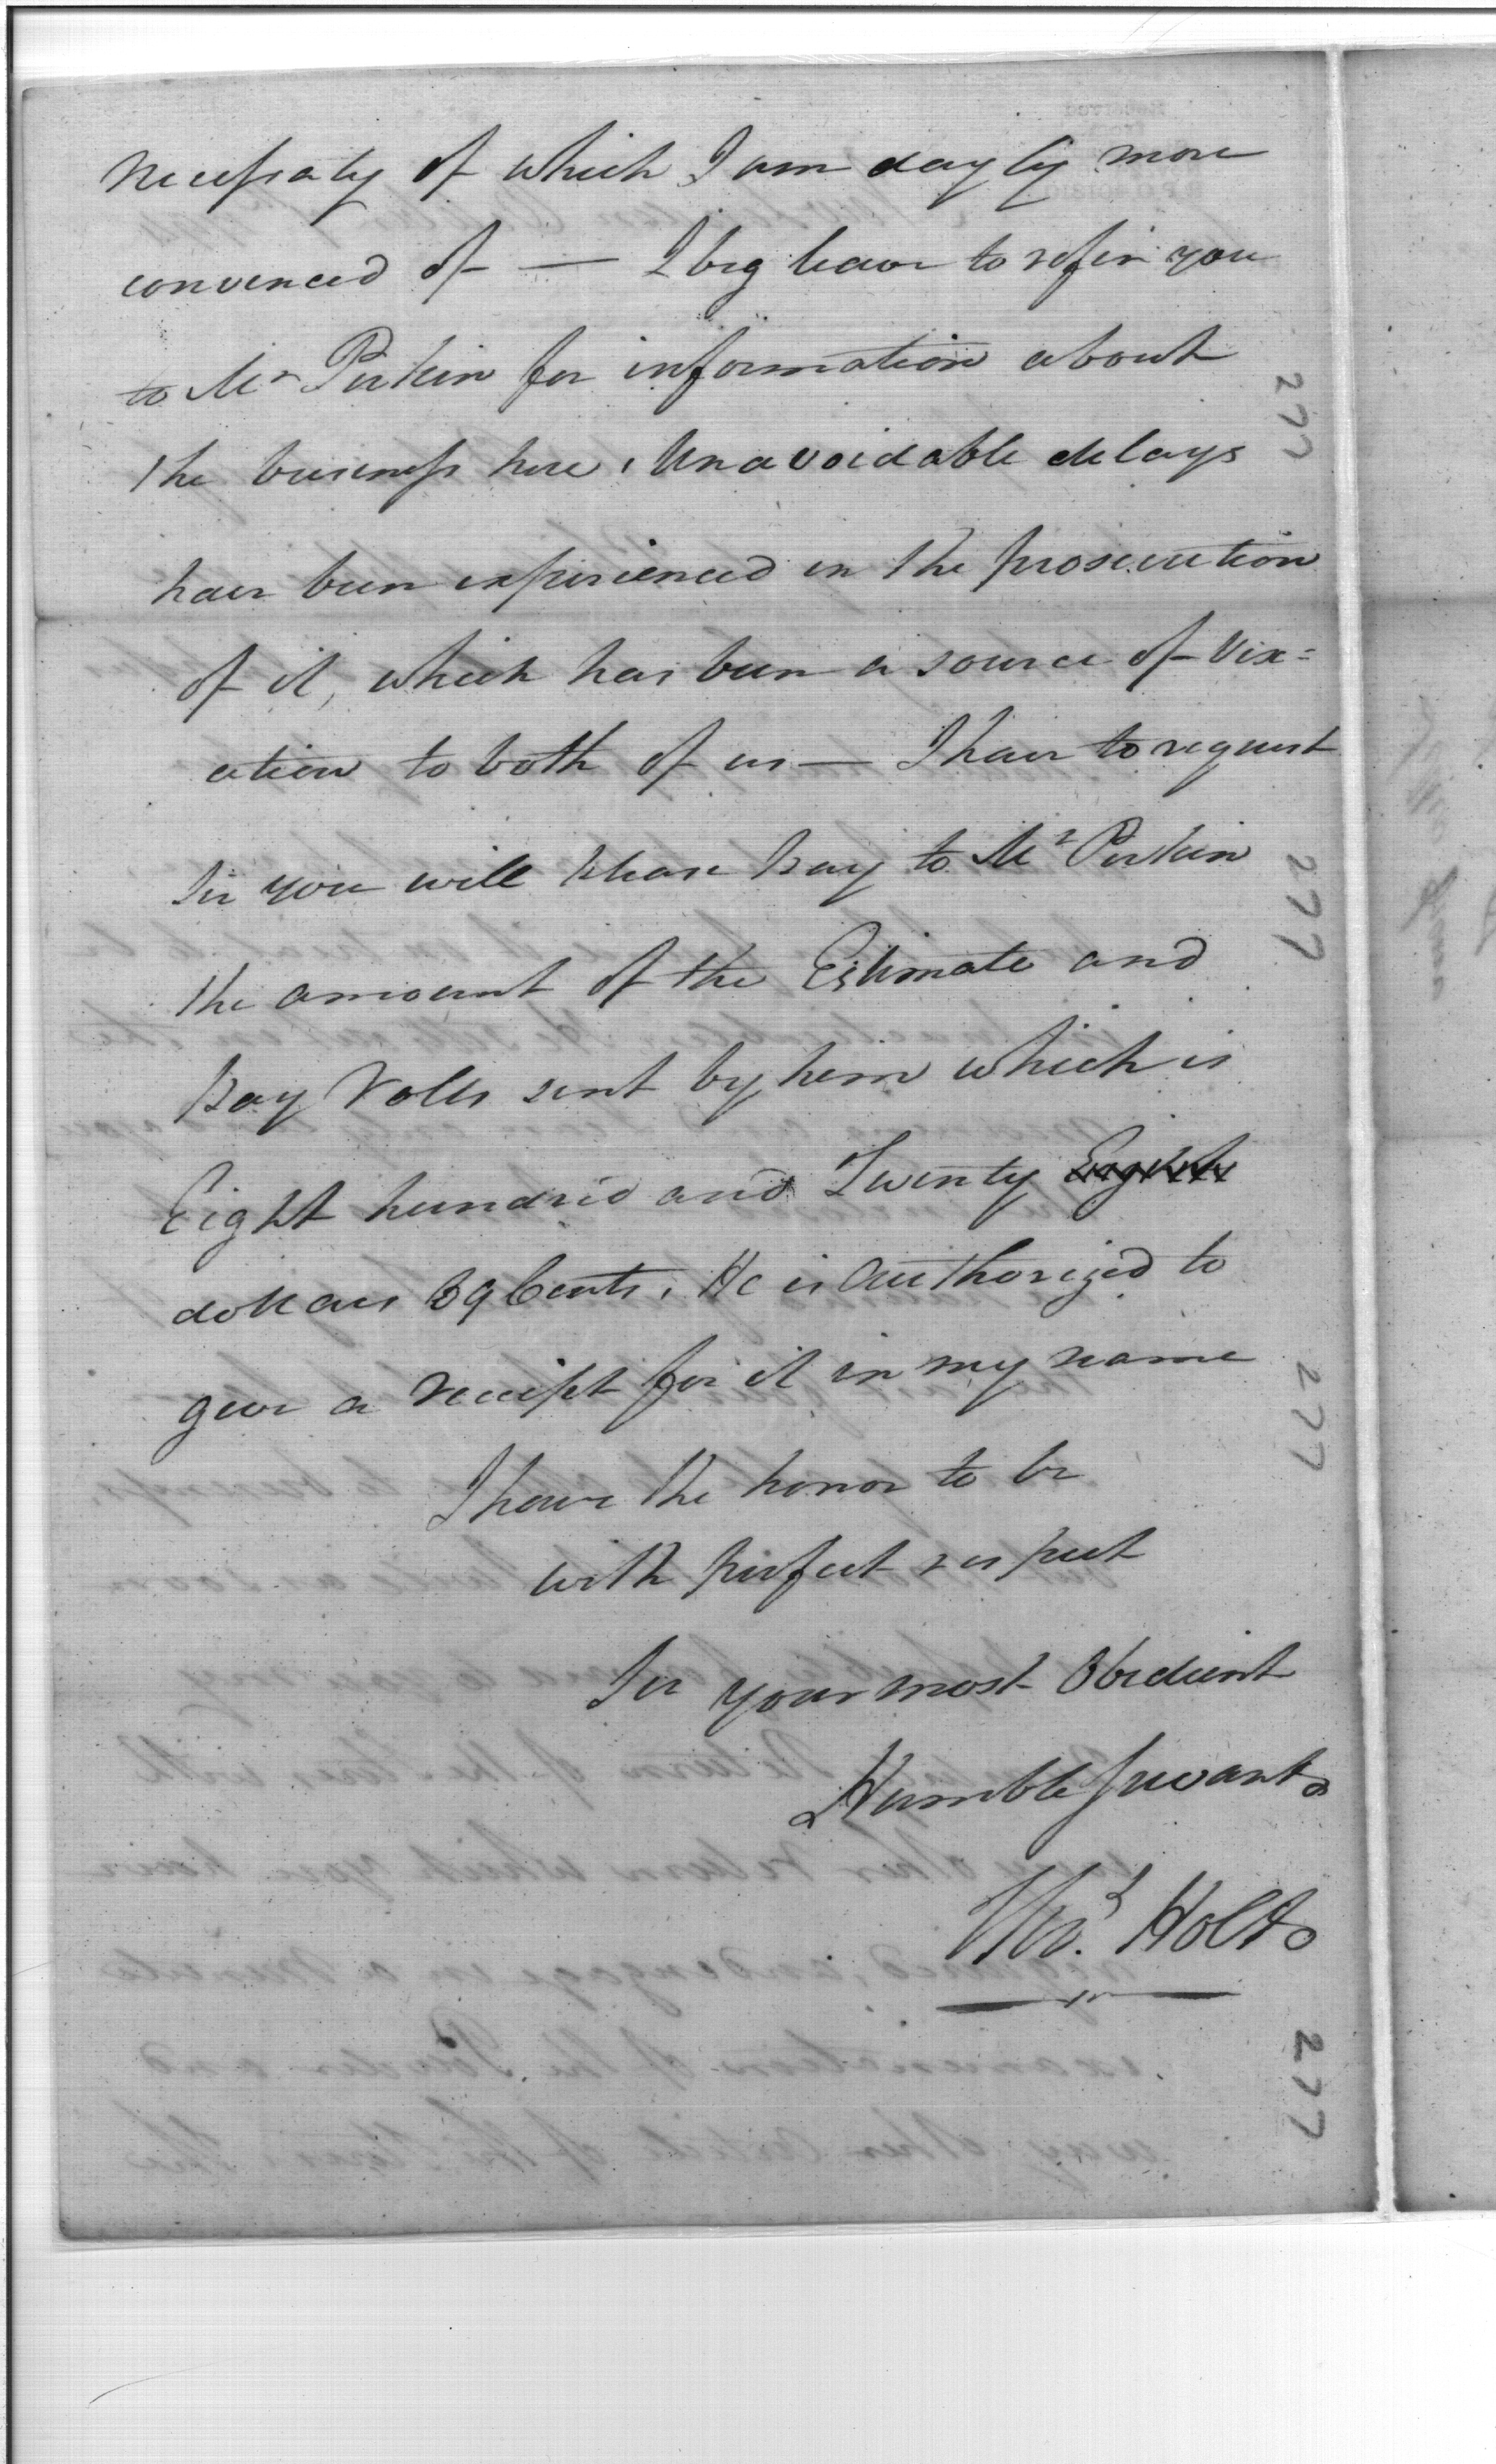 necessaty of which I am dayly more
convenced of — I beg leave to refer you
to Mr Perkin for information about
the business here, Unavoidable delays
have been experienced in the prosecution
of it, which has been a source of Vex=
ation to both of us — I have to request
Sir you will please pay to Mr Perkin
the amount of the Estimate and
Pay Rolls sent by him which is
Eight hundred and Twenty Eight
dollars 39 Cents, He is authorized to
give a receipt for it in my name
I have the honor to be
with perfect respect
Sir your most Obedient
Humble Servant
Thos. Holt
277
277
277
277